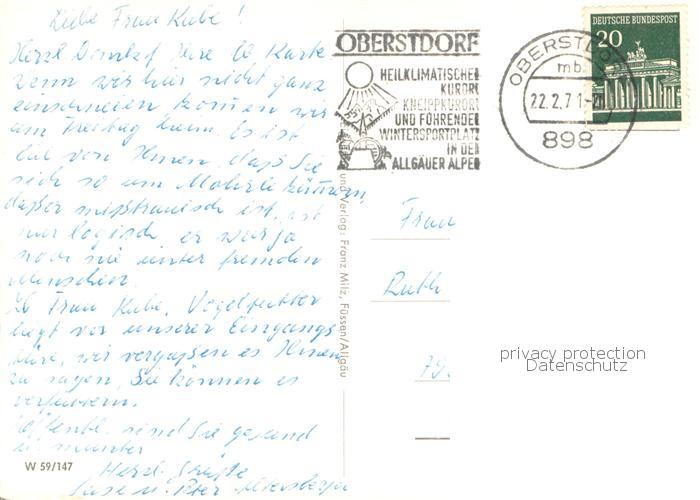 Liebe Frau Kube!
Herzl. Dank f. Ihre lb Karte
wenn wir hier nicht ganz
einschneien kommen wir
am Freitag heim. Es ist
lieb von Ihnen, daß Sie
sich so um Mohrle kümmern,
daß er mißtrauisch ist, ist
nur logisch, er war ja
noch nie unter fremden
Menschen.
Lb Frau Kube, Vogelfutter
liegt vor unserer Eingangs
türe, wir vergaßen es Ihnen
zu sagen, Sie können es
verfüttern.
Hoffentl. sind Sie gesund
u. munter
Herzl. Grüße
u. Peter
W 59/147
und Verlag: Franz Milz, Füssen/Allgäu
OBERSTDORF
HEILKLIMATISCHER
KURORT
KNEIPPKURORT
UND FÜHRENDER
WINTERSPORTPLATZ
IN DEN
ALLGÄUER ALPEN
OBERSTDORF
mb
22.2.71-
898
DEUTSCHE BUNDESPOST
20
Frau
Ruth
privacy protection
Datenschutz